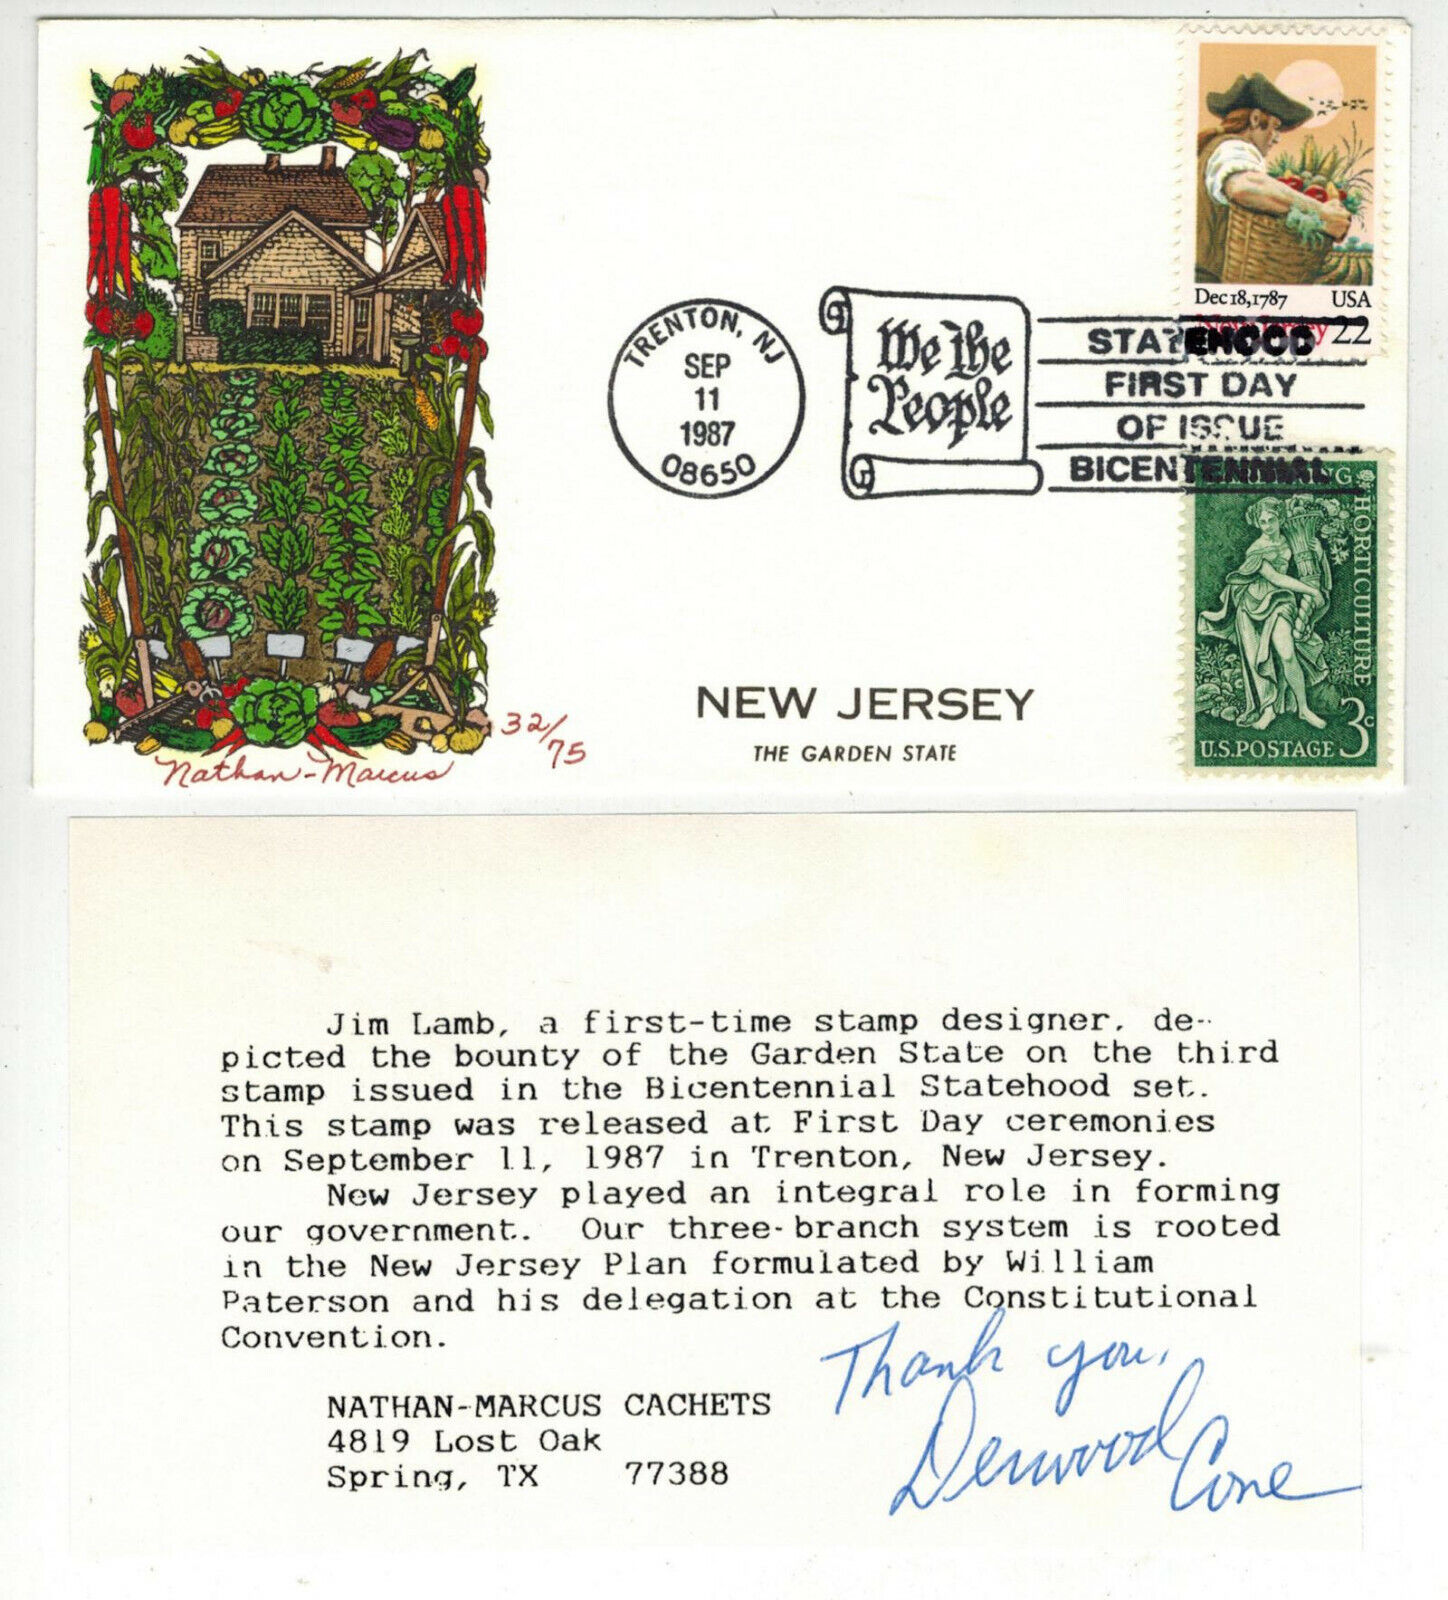 Dec 18, 1787 USA
New Jersey 22
TRENTON, NJ
SEP
11
1987
08650
We the
People
STATEHOOD
FIRST DAY
OF ISSUE
BICENTENNIAL
HORTICULTURE
3c
U.S. POSTAGE
NEW JERSEY
THE GARDEN STATE
32/75
Nathan-Marcus
Jim Lamb, a first-time stamp designer, de-
picted the bounty of the Garden State on the third
stamp issued in the Bicentennial Statehood set.
This stamp was released at First Day ceremonies
on September 11, 1987 in Trenton, New Jersey.
New Jersey played an integral role in forming
our government. Our three-branch system is rooted
in the New Jersey Plan formulated by William
Paterson and his delegation at the Constitutional
Convention.
Thank you,
Derwood Cone
NATHAN-MARCUS CACHETS
4819 Lost Oak
Spring, TX 77388